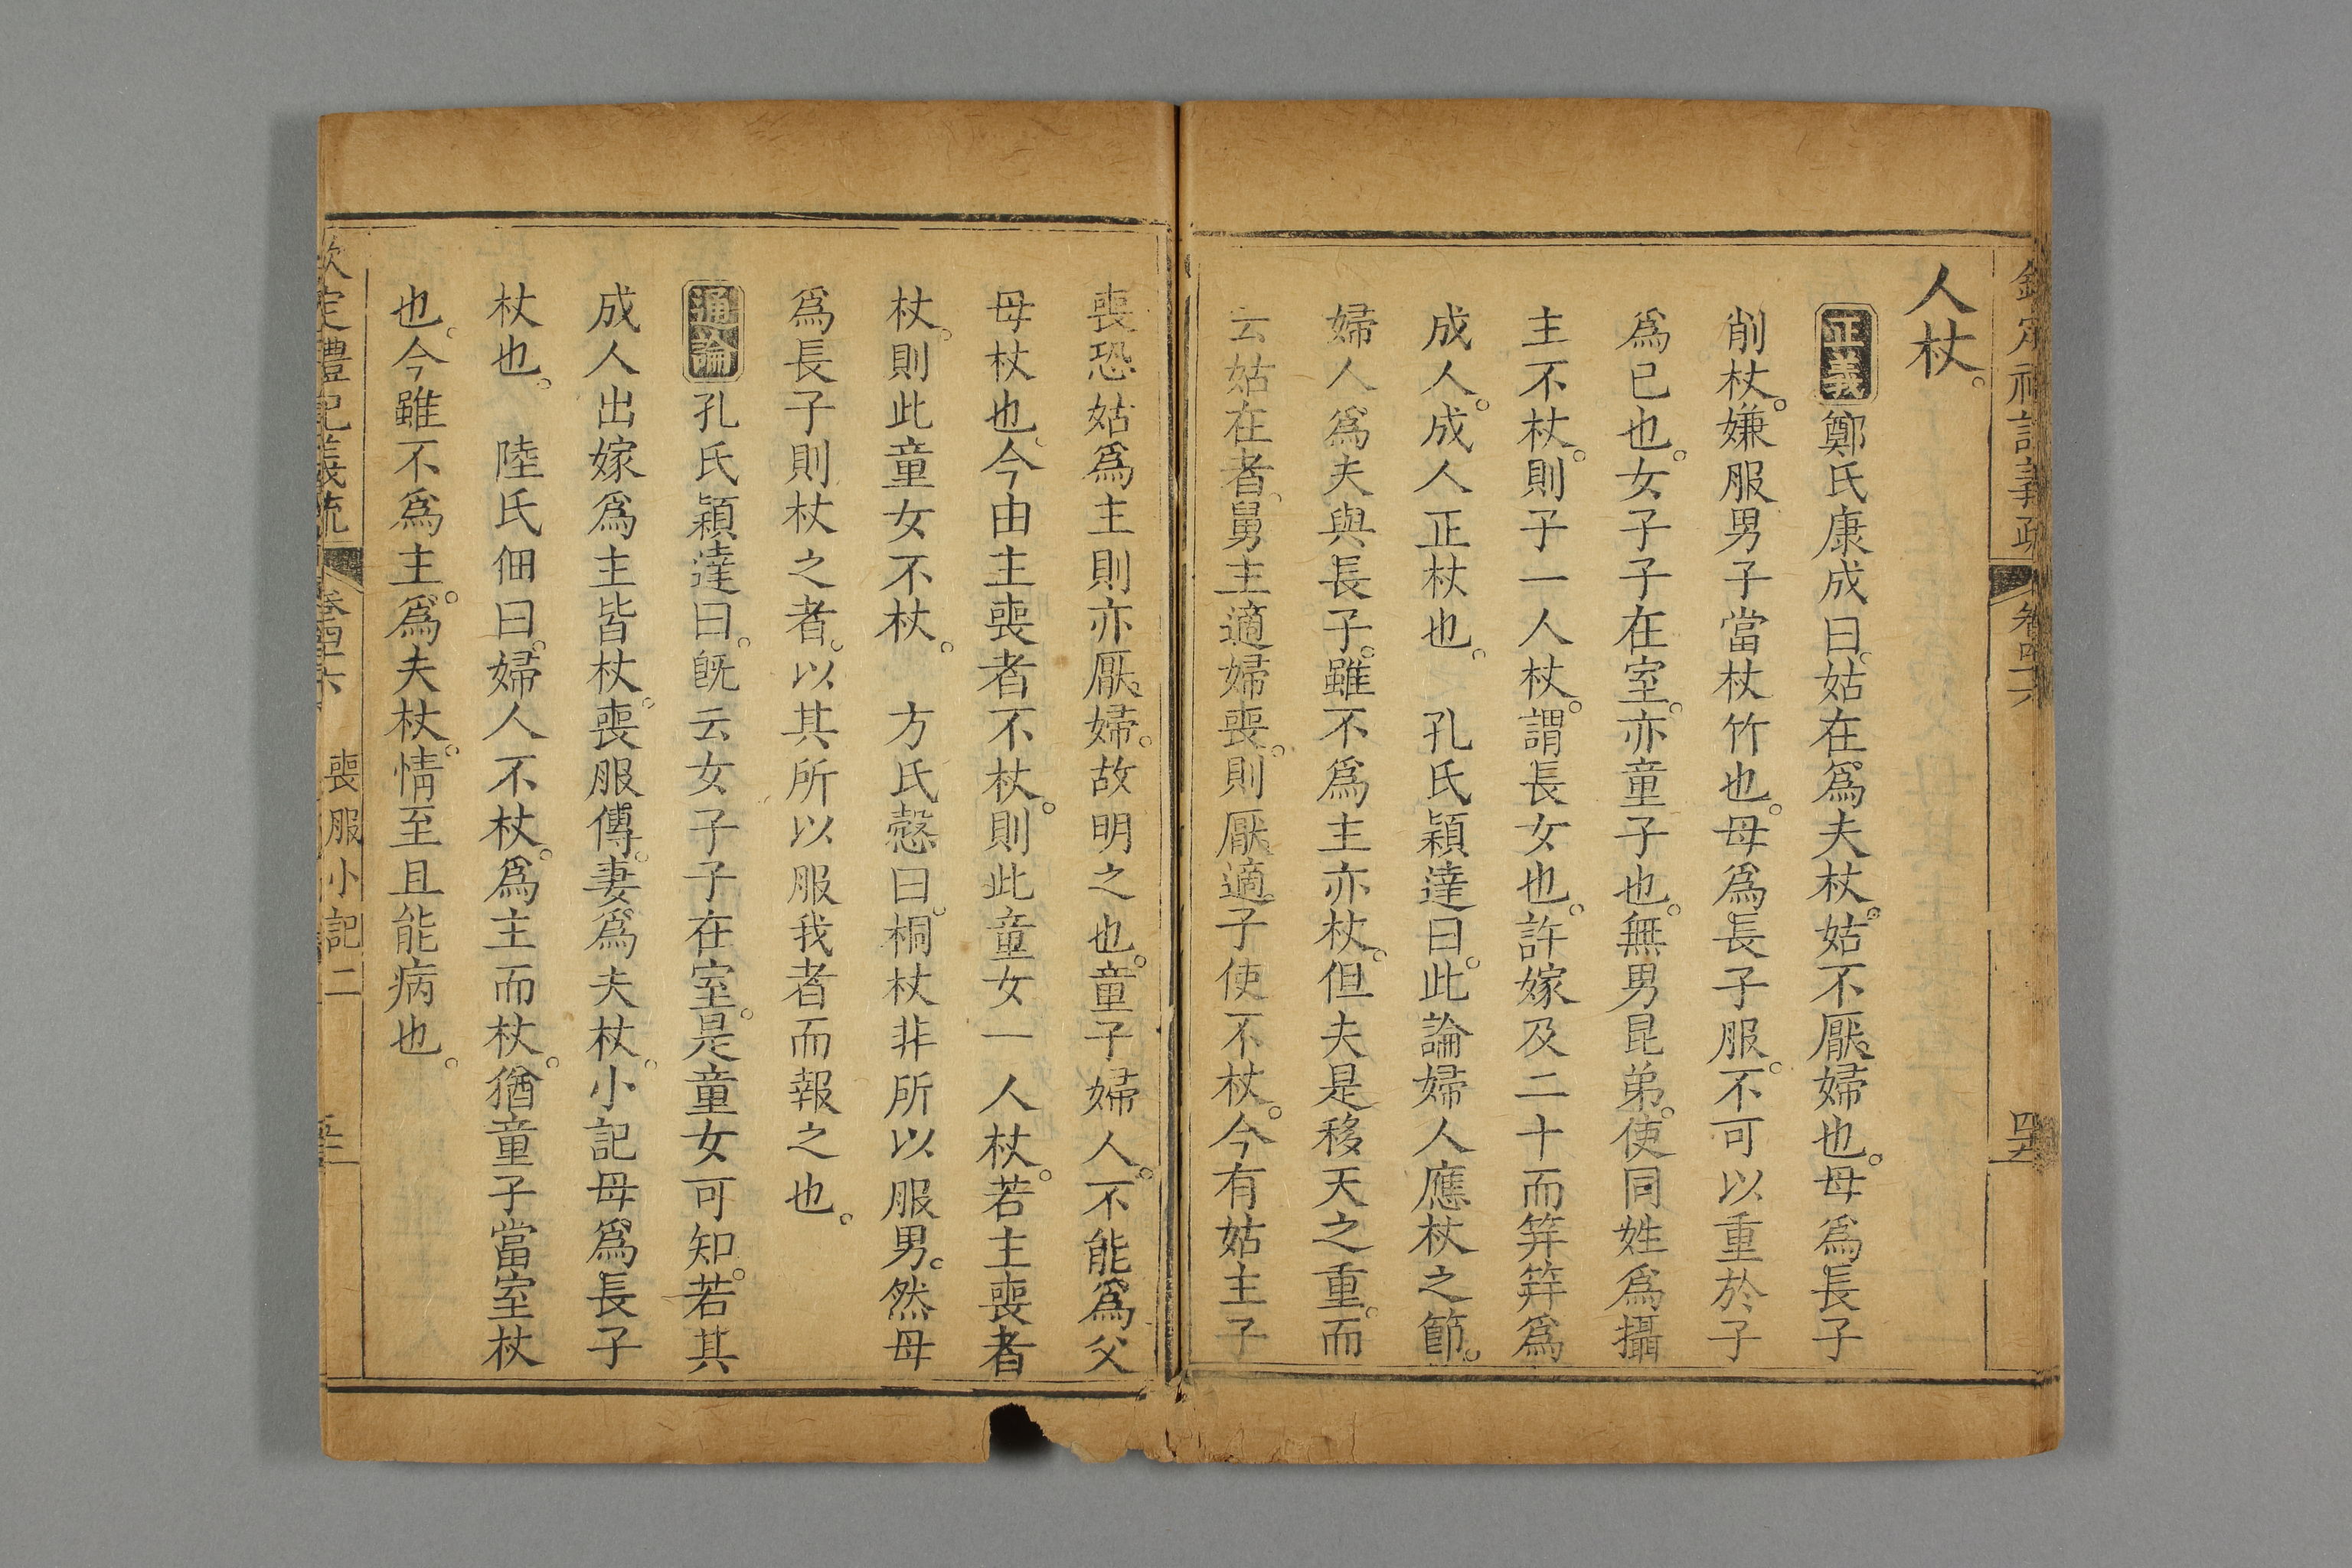 人杖。
正義鄭氏康成曰。姑在爲夫杖。姑不厭婦也。母爲長子
削杖。嫌服男子當杖竹也。母爲長子服。不可以重於子
爲己也。女子子在室。亦童子也。無男昆弟。使同姓爲攝
主不杖。則子一人杖。謂長女也。許嫁及二十而筓筓爲
成人。成人正杖也。　孔氏穎達曰。此論婦人應杖之節。
婦人爲夫與長子。雖不爲主亦杖。但夫是移天之重。而
云姑在者、舅主適婦喪。則厭適子使不杖。今有姑主子
喪恐姑爲主則亦厭婦。故明之也。童子婦人。不能爲父
母杖也、今由主喪者不杖。則此童女一人杖。若主喪者
杖。則此童女不杖。　方氏慤曰。桐杖非所以服男。然母
爲長子則杖之者。以其所以服我者而報之也。
通論孔氏穎達曰。旣云女子子在室。是童女可知。若其
成人出嫁爲主皆杖。喪服傳。妻爲夫杖。小記母爲長子
杖也。　陸氏佃曰。婦人不杖。爲主而杖。猶童子當室杖
也。今雖不爲主。爲夫杖。情至且能病也。
欽定禮記義疏　卷四十六　喪服小記二